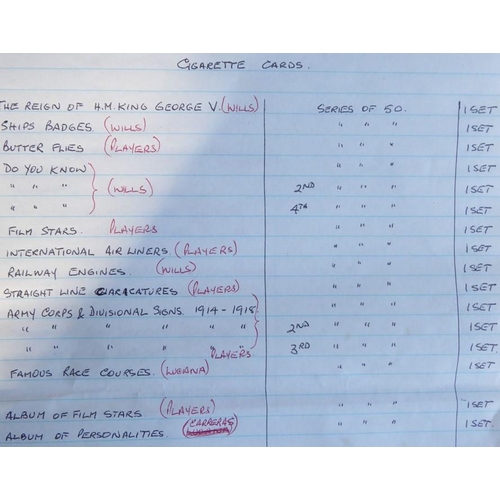 CIGARETTE CARDS.
THE REIGN OF H.M. KING GEORGE V. (WILLS) SERIES OF 50. 1 SET
SHIPS BADGES. (WILLS) " " " 1 SET
BUTTER FLIES (PLAYERS) " " " 1 SET
DO YOU KNOW " " " 1 SET
" " " (WILLS) 2ND " " " 1 SET
" " " 4TH " " " 1 SET
FILM STARS. PLAYERS " " " 1 SET
INTERNATIONAL AIR LINERS. (PLAYERS) " " " 1 SET
RAILWAY ENGINES. (WILLS) " " " 1 SET
STRAIGHT LINE CARACATURES (PLAYERS) " " " 1 SET
ARMY CORPS & DIVISIONAL SIGNS. 1914-1918 " " " 1 SET
" " " " " " 2ND " " " 1 SET
" " " " PLAYERS. 3RD " " " 1 SET
FAMOUS RACE COURSES. (LUCANA) " " " 1 SET
ALBUM OF FILM STARS. (PLAYERS) " " " 1 SET
ALBUM OF PERSONALITIES. (CARRERAS) " " " 1 SET